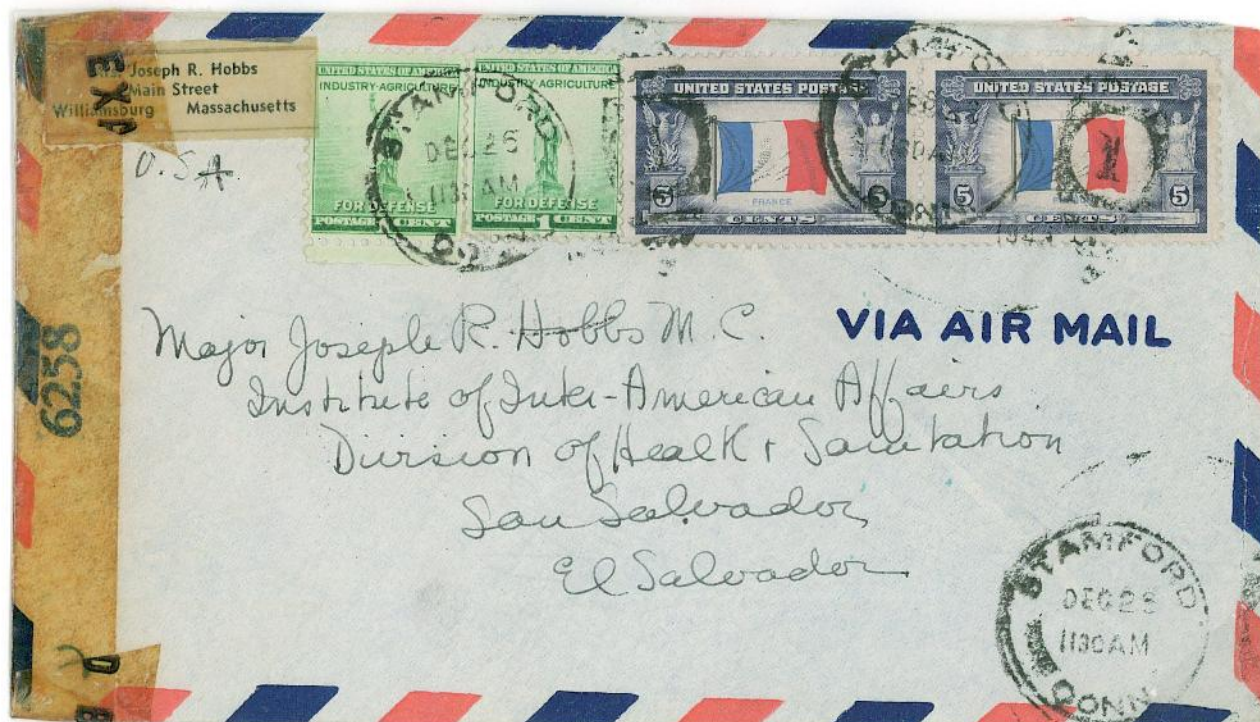 Joseph R. Hobbs
Main Street
Williamsburg Massachusetts
U.S.A.
UNITED STATES OF AMERICA
INDUSTRY-AGRICULTURE
FOR DEFENSE
POSTAGE 1 CENT
UNITED STATES OF AMERICA
INDUSTRY-AGRICULTURE
FOR DEFENSE
POSTAGE 1 CENT
UNITED STATES POSTAGE
FRANCE
5 5
CENTS
UNITED STATES POSTAGE
5
CENTS
STAMFORD
DEC 26
1130 AM
CONN
VIA AIR MAIL
Major Joseph R. Hobbs M.C.
Institute of Inter-American Affairs
Division of Health + Sanitation
San Salvador
El Salvador
6258
STAMFORD
DEC 26
1130 AM
CONN